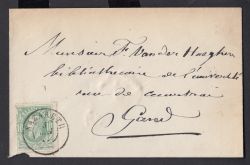 Monsieur F. Van der Haeghen
bibliothécaire de l'université
rue de Courtrai
Gand